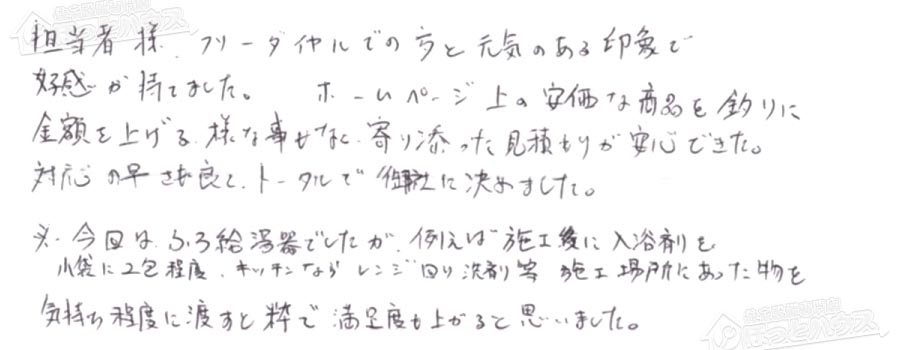 担当者様、フリーダイヤルでの方と元気のある印象で
好感が持てました。 ホームページ上の安価な商品を釣りに
金額を上げる様な事もなく、寄り添った見積もりが安心できた。
対応の早さも良く、トータルで御社に決めました。
※今回は、ふろ給湯器でしたが、例えば施工後に入浴剤を
小袋に2包程度、キッチンなら レンジ回り洗剤等 施工場所にあった物を
気持ち程度に渡すと粋で満足度も上がると思いました。
ほっとハウス